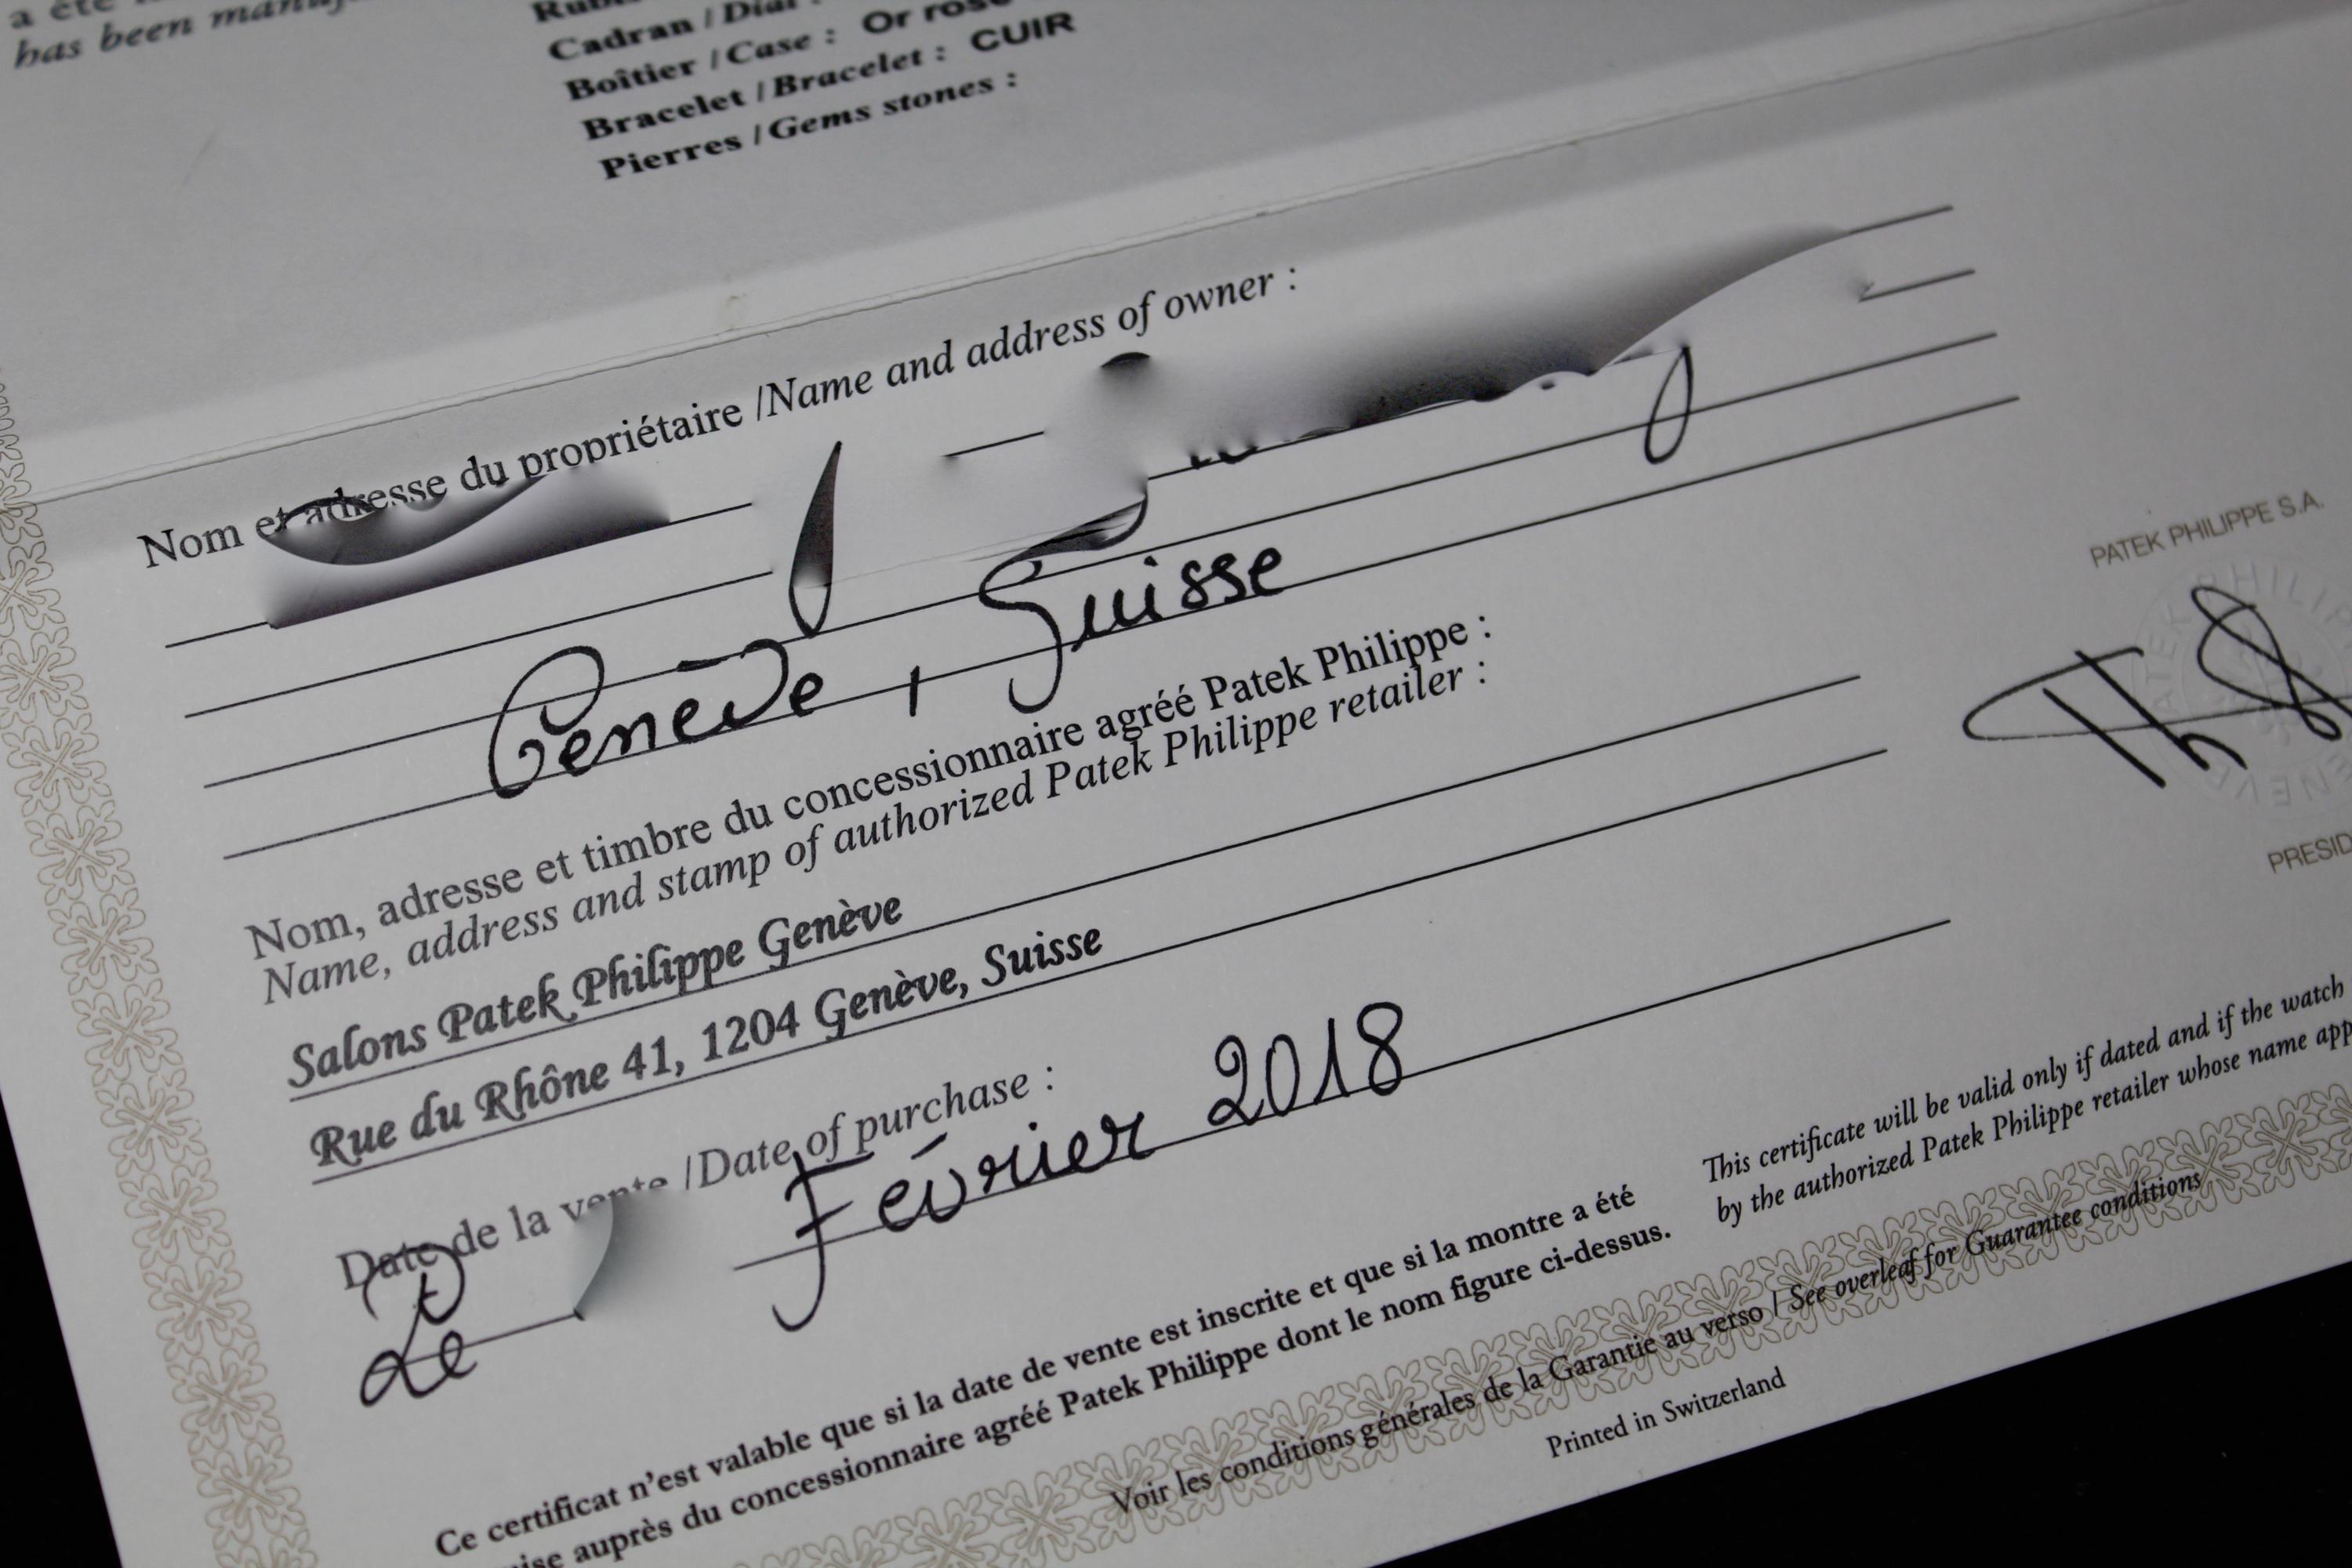 a été
has been
Cadran / Dial :
Boîtier / Case : Or rose
Bracelet / Bracelet : CUIR
Pierres / Gems stones :
Nom et adresse du propriétaire / Name and address of owner :
Genève, Suisse
Nom, adresse et timbre du concessionnaire agréé Patek Philippe :
Name, address and stamp of authorized Patek Philippe retailer :
Salons Patek Philippe Genève
Rue du Rhône 41, 1204 Genève, Suisse
Date de la vente / Date of purchase :
Le Février 2018
PATEK PHILIPPE S.A.
PATEK PHILIPPE GENEVE
Ce certificat n'est valable que si la date de vente est inscrite et que si la montre a été
auprès du concessionnaire agréé Patek Philippe dont le nom figure ci-dessus.
This certificate will be valid only if dated and if the watch
by the authorized Patek Philippe retailer whose name
Voir les conditions générales de la Garantie au verso / See overleaf for Guarantee conditions
Printed in Switzerland